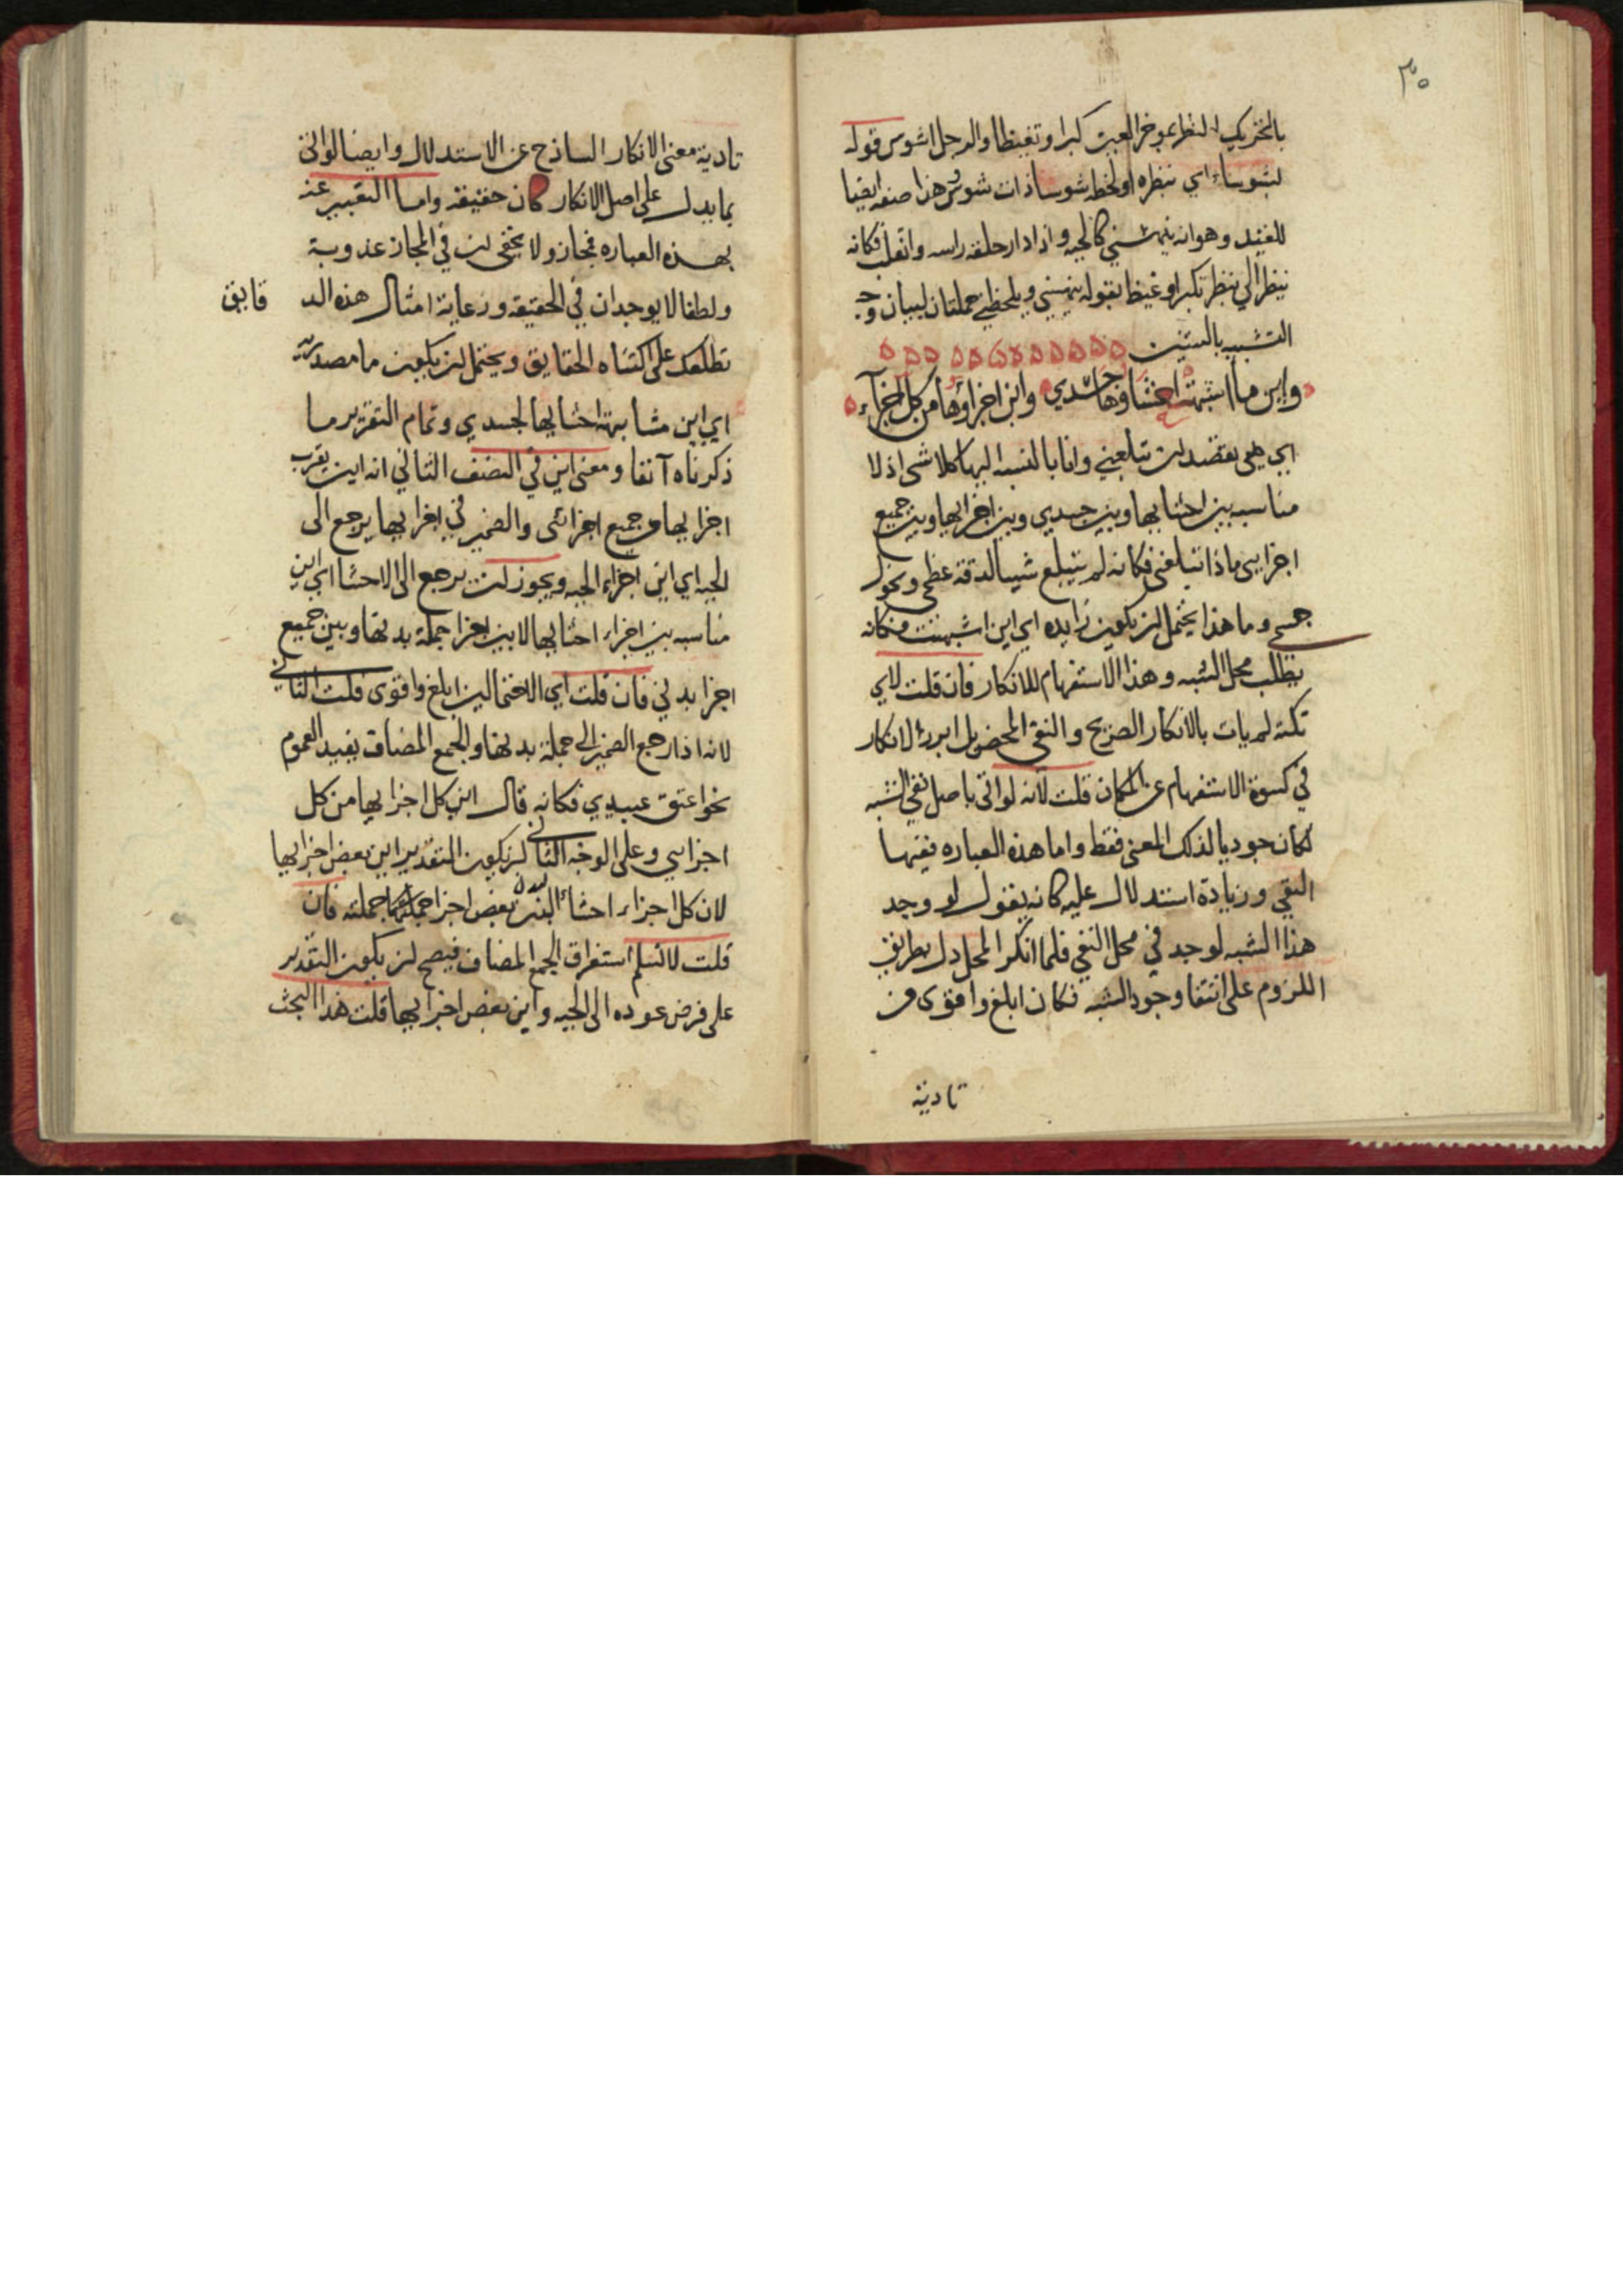 ٣٠
بالتحريك النظر بموخر العين كبرا وتغيظا والرجل اشوس قوله
لشوساء اي ينظره اولحظه شوسا ذات شوس هذا صفه ايضا
للقيد وهوانه ينهشني كالحيه واذا دار حلقه راسه واتعلب فكانه
ينظر الي بنظر تكبر او غيظ بقوله ينهشني ويلحظني جملتان لبيان وجه
التشبيه بالستين
واين ما اشبهت احشاوها جسدي واين اجزاوها من كل اجزاء
اي هي بقصد ان تبلعني وانا بالنسبه اليها كلا شي اذ لا
مناسبه بين احشايها وبين جسدي وبين اجزايها وبين جميع
اجزايي ماذا تبلعني فكانه لم يتبلع شيا لدقة عظمي ونحول
جسمي وما هذا يحتمل ان يكون زايده اي اين اشبهت فكانه
يطلب محل الشبه وهذا الاستفهام للانكار فان قلت لاي
نكته لم يات بالانكار الصريح والنفي المحض بل ابرز الانكار
في كسوة الاستفهام عن المكان قلت لانه لو اتى باصل نفي الشبه
لكان موديا لذلك المعنى فقط واما هذه العباره ففيها
النفي وزيادة استدلال عليه كانه يقول لو وجد
هذا الشبه لوجد في محل النفي فلما انكر المحل دل بطريق
اللزوم على انتفا وجود الشبه فكان ابلغ واقوى من
تادية
تادية معنى الانكار الساذج عن الاستدلال وايضا لو اتى
بما يدل على اصل الانكار كان حقيقة واما التعبير عنه
بهذه العباره فمجاز ولا يخفى ان في المجاز عذوبة
ولطفا لا يوجدان في الحقيقه ورعاية امثال هذه الد قايق
تطلعك على اكتناه الحقايق ويحتمل ان يكون ما مصدرية
اي اين مشابهة احشايها لجسدي وتمام التقرير ما
ذكرناه آنفا ومعنى اين في النصف الثاني انه اين يقرب
اجزايها من جميع اجزائي والضمير في اجزايها يرجع الى
الحيه اي اين اجزاء الحيه ويجوز ان يرجع الى الاحشا اي اين
مناسبه بين اجزاء احشايها لا بين اجزا جملة بدنها وبين جميع
اجزا بدني فان قلت اي الاحتمالين ابلغ واقوى قلت الثاني
لانه اذا رجع الضمير الى جملة بدنها والجمع المضاف يفيد العموم
نحو اعتق عبيدي فكانه قال اين كل اجزايها من كل
اجزايي وعلى الوجه الثاني ان يكون التقدير اين بعض اجزايها
لان كل اجزاء احشاء البدن بعض اجزا جملته فان
قلت لا نسلم استغراق الجمع المضاف فيصح ان يكون التقدير
على فرض عوده الى الحيه واين بعض اجزايها قلت هذا البحث